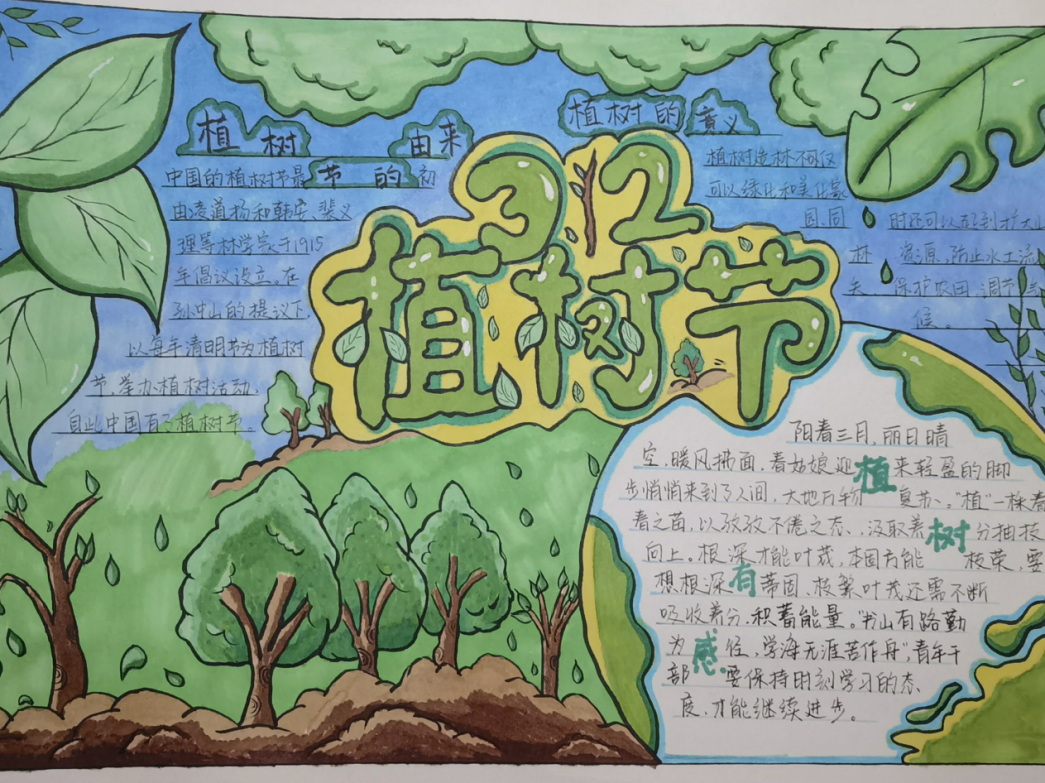 植树节的由来
中国的植树节最初
由凌道扬和韩安、裴义
理等林学家于1915
年倡议设立。在
孙中山的提议下
以每年清明节为植树
节.举办植树活动.
自此中国有了植树节
312
植树节
植树的意义
植树造林不仅
可以绿化和美化家
园.同
时还可以起到扩大山
林资源.防止水土流
失保护农田.调节气
候。
植树有感
阳春三月.丽日晴
空.暖风拂面.春姑娘迎来轻盈的脚
步悄悄来到了人间，大地万物复苏、"植"一株青
春之苗，以孜孜不倦之态、汲取养分抽枝
向上。根深才能叶茂，本固方能枝荣，要
想根深蒂固、枝繁叶茂还需不断
吸收养分.积蓄能量。"书山有路勤
为径.学海无涯苦作舟"，青年干
部要保持时刻学习的态
度.才能继续进步。